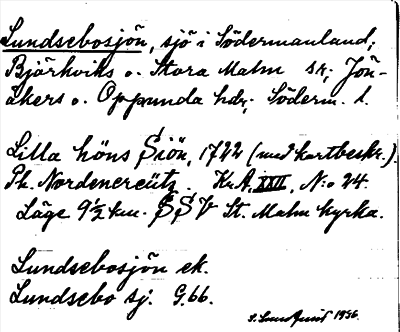 Lundsebosjön, sjö i Södermanland;
Björkviks o. Stora Malm sr; Jön-
åkers o. Oppunda hdr; Söderm. l.
Lilla höns Siön, 1722 (med kartbeskr.).
Ph. Nordencreütz. KrA, XXII, No 24.
Läge 9½ km. SSV St. Malm kyrka.
Lundsebosjön ek.
Lundsebo sj. G.66.
1936.